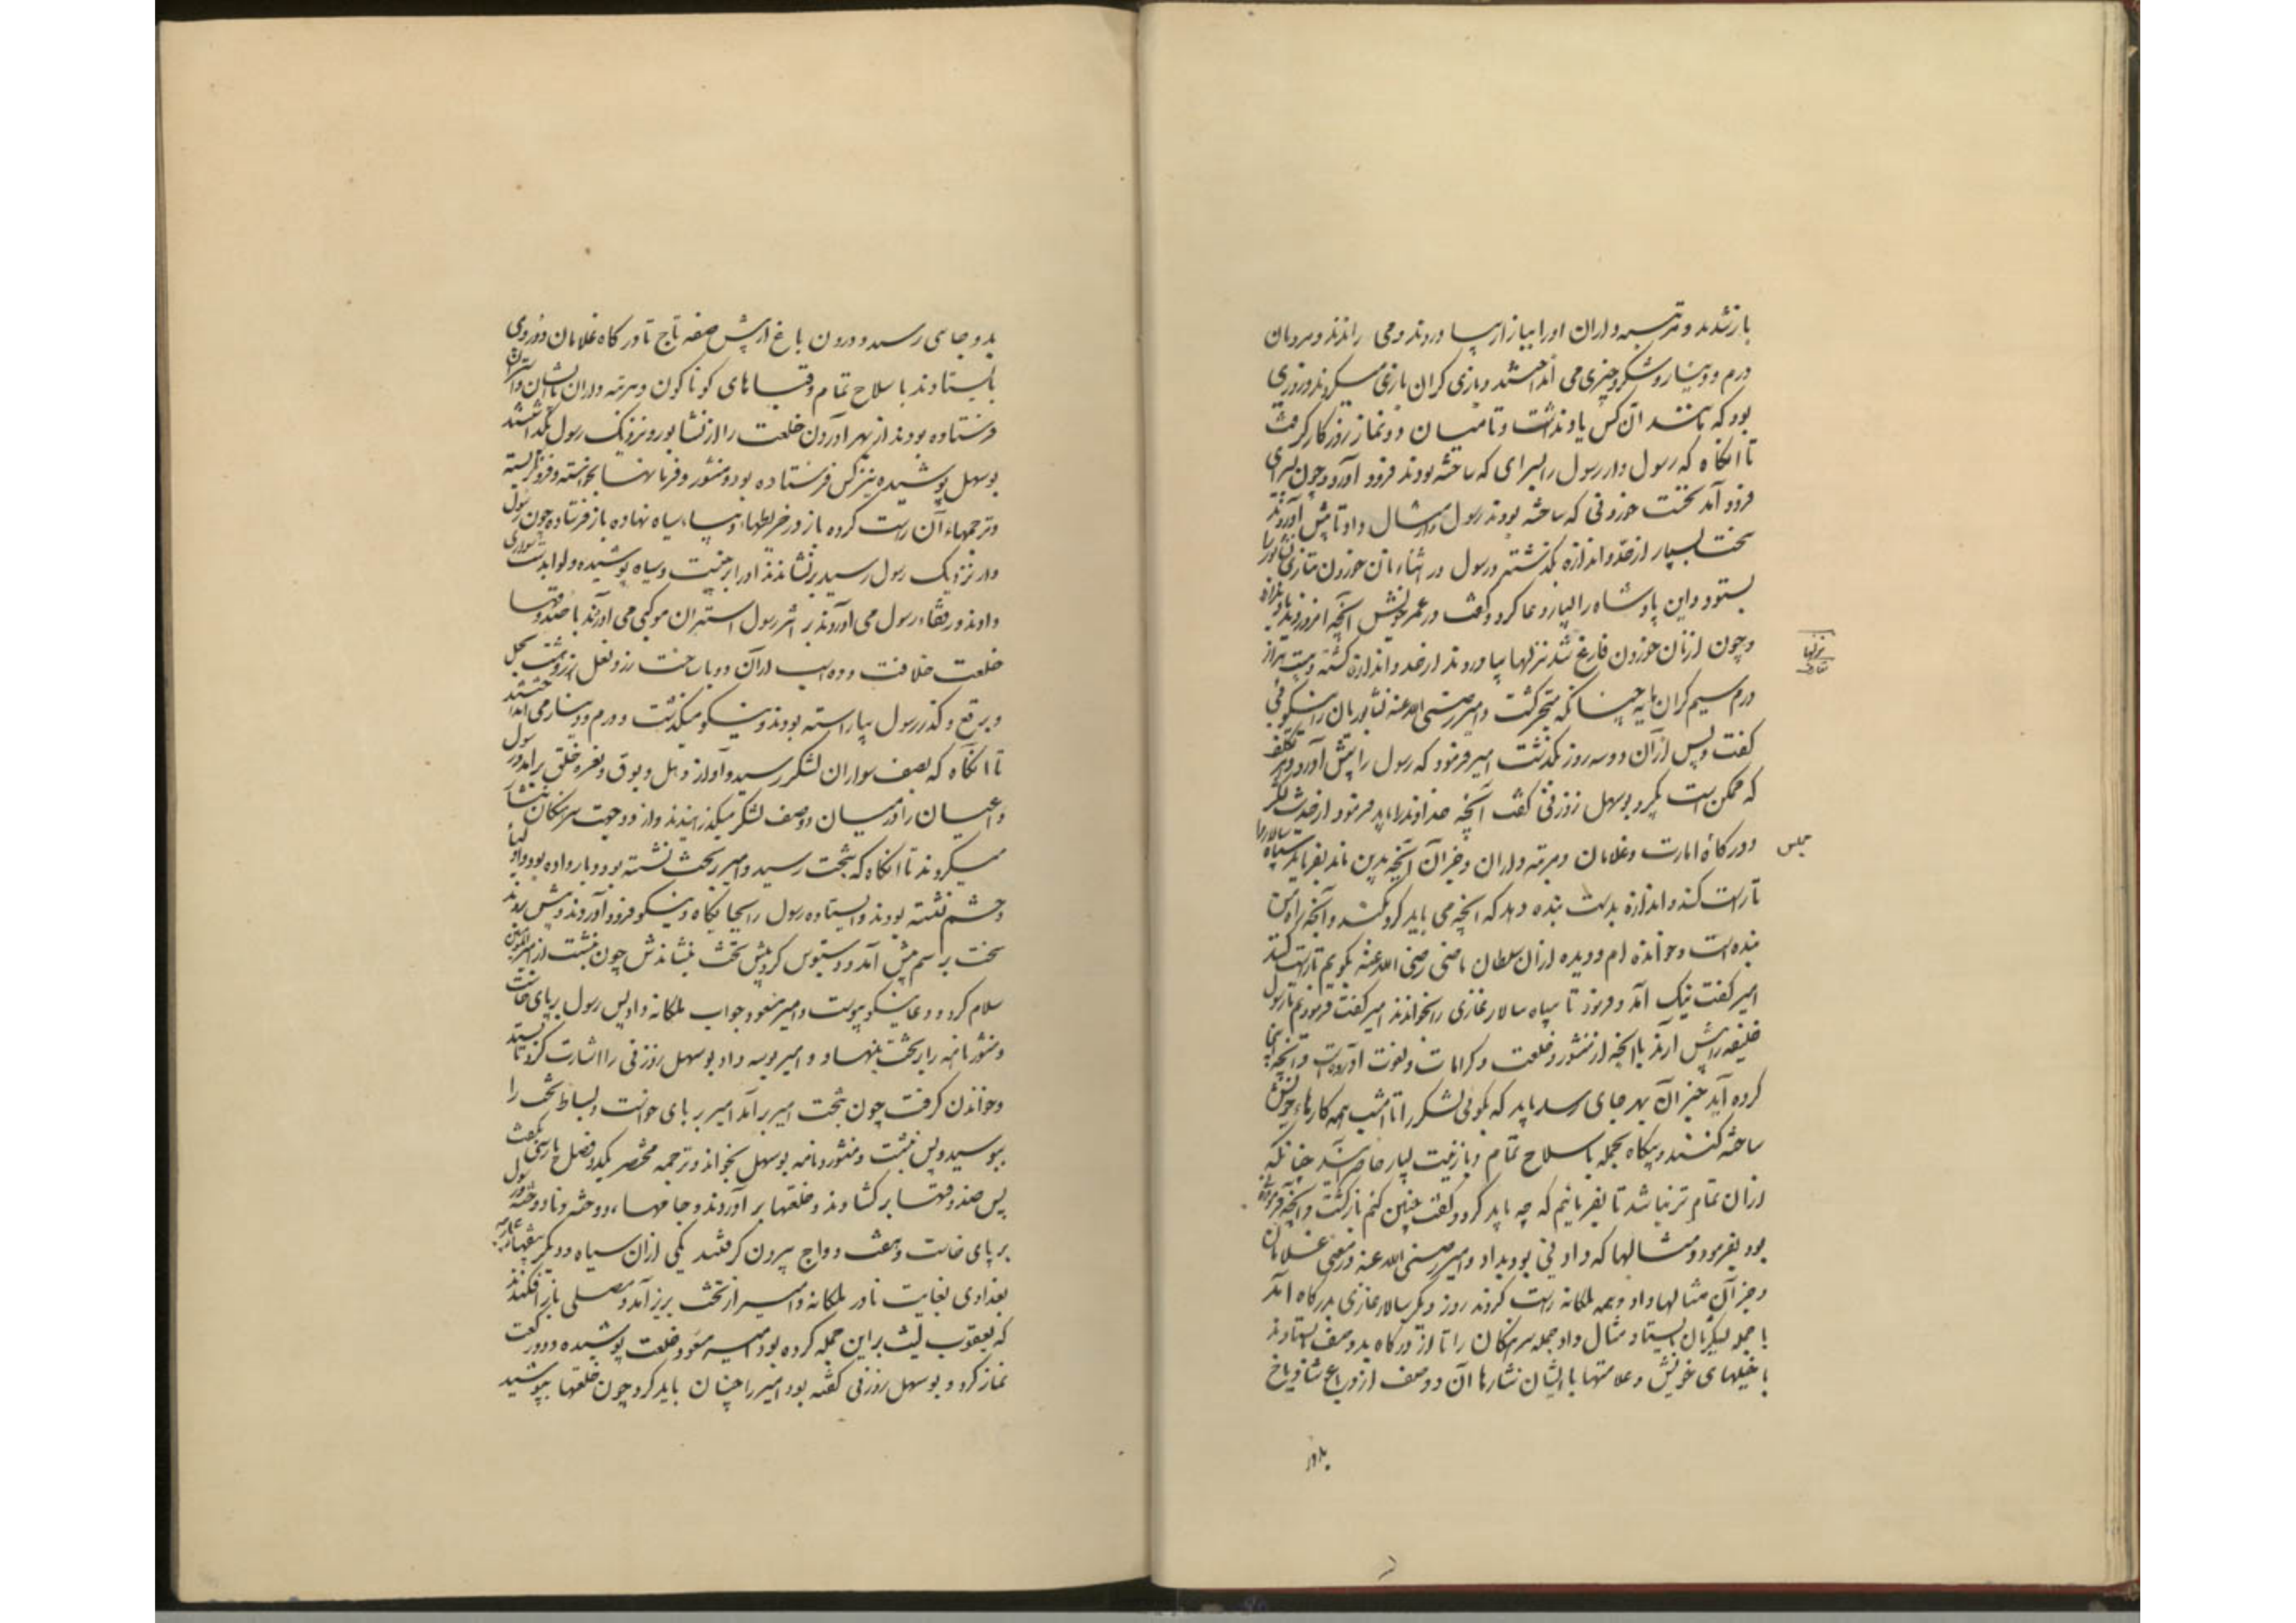 باز شدند و مرتبه داران او را ببازار بیاوردند و می راندند و مردمان
درم و دینار و شکر و چیزی می انداختند و بازی گران بازی میکردند و روزی
بود که مانند آن کس یاد نداشت و تا میان دو نماز روزگار گرفت
تا آنگاه که رسول دار رسول را بسرای که ساخته بودند فرود آورد و چون بسرای
فرود آمد نخست خوردنی که ساخته بودند رسول دار مثال داد تا پیش آوردند
سخت بسیار از حد و اندازه گذشته و رسول در اثناء نان خوردن بتازی نشابور را
بستود و این پادشاه را بسیار دعا کرد و گفت در عمر خویش آنچه امروز دید یاد ندارد
و چون از نان خوردن فارغ شد نزلها بیاوردند از حد و اندازه گذشته و بیست هزار
درم سیم گرمابه چنانکه متحیر گشت و امیر رضی الله عنه نشابوریان را نیکوئی
گفت و پس از آن دو سه روز بگذشت امیر فرمود که رسول را پیش آورد و هر تکلف
که ممکن است بکرد بوسهل زوزنی گفت آنچه خداوند را باید فرمود از حدیث لشکر
و درگاه امارت و غلامان و مرتبه داران و جز آن آنچه بدین ماند بفرماید سپاه سالار را
تا راست کند و اندازه بدست بنده دهد که آنچه می باید کرد بکند و آنچه راه من
بنده است و خوانده ام و دیده از آن سلطان ماضی رضی الله عنه بگویم تا راست کنند
امیر گفت نیک آمد و فرمود تا سپاه سالار غازی را بخواندند امیر گفت فرمودیم تا رسول
خلیفه را پیش آرند با آنچه از منشور و خلعت و کرامات و نعوت آورده است و آنچه اینجا
کرده آید خبر آن بهر جای رسد باید که بگوئی لشکر را تا امشب همه کارهاء خویش
ساخته کنند و پگاه بجمله با سلاح تمام و با زینت بسیار حاضر آیند چنانکه
از آن تمام تر نباشد تا بفرمائیم که چه باید کرد و گفت چنین کنم بازگشت و آنچه فرمودنی
بود بفرمود و مثالها که دادنی بود بداد و امیر رضی الله عنه در معنی غلامان
و جز آن مثالها داد و همه ملکانه راست کردند روز دیگر سالار غازی بدرگاه آمد
با جمله لشکریان بایستاد و مثال داد جمله سرهنگان را تا از درگاه بدو صف بایستادند
با خیلهای خویش و علامتها با ایشان نشارها آن دو صف از در باغ شادیاخ
نزلها
مجلس
بدور
بدور جای رسید و درون باغ از پیش صفه تاج تا درگاه غلامان دو روی
بایستادند با سلاح تمام و قباهای گوناگون و مرتبه داران با ایشان و استران
فرستاده بودند از بهر آوردن خلعت را از نشابور و نزدیک رسول بگذاشتند
بوسهل پوشیده نیز کس فرستاده بود و منشور و فرمانها بخواسته و فرو نگریسته
و ترجمهاء آن راست کرده باز در خریطهاء دیباء سیاه نهاده باز فرستاده چون رسول
دار نزدیک رسول رسید برنشاندند او را بر جنیبت و سیاه پوشیده و لوا بدست سواری
دادند در قفاء رسول می آوردند بر اثر رسول استران موکبی می آوردند با صندوقها
خلعت خلافت و ده اسب از آن دو با ساخت زر و نعل زر و هشت بجل
و برقع و گذر رسول بیاراسته بودند نیکو میگذشت و درم و دینار می انداختند
تا آنگاه که بصف سواران لشکر رسید و آواز دهل و بوق و نعره خلق برآمد و رسول
و اعیان را در میان دو صف لشکر میگذرانیدند و از دو جهت سرهنگان نثار
میکردند تا آنگاه که بتخت رسید و امیر بر تخت نشسته بود و بار داده بود و اولیا
و حشم نشسته بودند و ایستاده رسول را بجایگاه نیکو فرود آوردند و پیش بردند
سخت برسم پیش آمد و دستبوس کرد و پیش تخت بنشاندش چون بنشست از امیر المومنین
سلام کرد و دعاء نیکو پیوست و امیر مسعود جواب ملکانه داد پس رسول بر پای خاست
و منشور نامه را بر تخت بنهاد و امیر بوسه داد بوسهل زوزنی را اشارت کرد تا بستد
و خواندن گرفت چون تحت امیر برآمد امیر بر پای خواست و بساط تخت را
ببوسید و پس بنشست و منشور و نامه بوسهل بخواند و ترجمه مختصر یکدو فصل پارسی بگفت
پس صندوقها برگشادند و خلعتها برآوردند و جامهاء دوخته و نادوخته و رسول
بر پای خاست و هفت دواج بیرون گرفتند یکی از آن سیاه و دیگر دبیقیهاء
بغدادی بغایت نادر ملکانه و امیر از تخت بزیر آمد و مصلی باز افکندند
که یعقوب لیث بر این جمله کرده بود امیر مسعود خلعت پوشیده و دو رکعت
نماز کرد و بوسهل زوزنی گفته بود امیر را چنان باید کرد چون خلعتها بپوشید